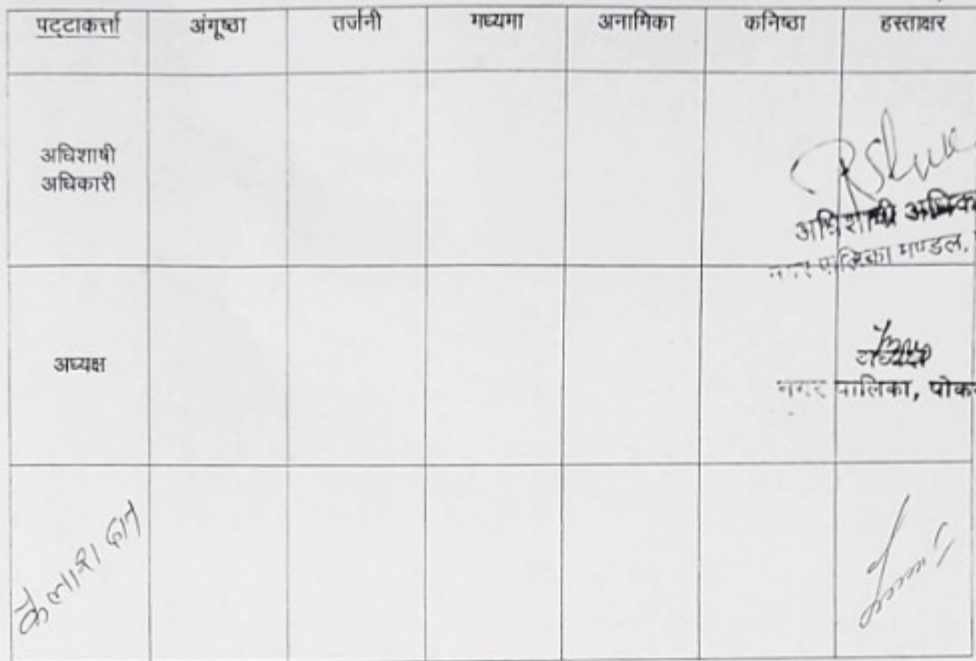 पट्टाकर्त्ता अंगूष्ठा तर्जनी मध्यमा अनामिका कनिष्ठा हस्ताक्षर
अधिशाषी
अधिकारी
अधिशाषी अधिक
नगर पालिका मण्डल,
अध्यक्ष
अध्यक्ष
नगर पालिका, पोक
कैलाश दान